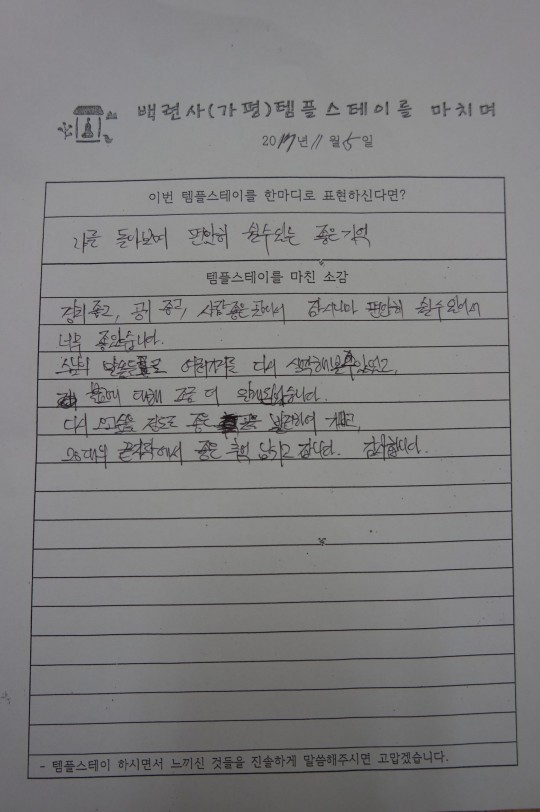 백련사(가평)템플스테이를 마치며
2017년 11월 5일
이번 템플스테이를 한마디로 표현하신다면?
나를 돌아보며 편안히 쉴수있는 좋은 기억
템플스테이를 마친 소감
경치 좋고, 공기 좋고, 사람 좋은 곳에서 잠시나마 편안히 쉴수 있어서
너무 좋았습니다.
스님의 말씀들로 여러가지를 다시 생각해볼수있었고,
대해 조금 더
다시 오고싶을 정도로 좋은
20대의 끝자락에서 좋은 추억 남기고 갑니다. 감사합니다.
- 템플스테이 하시면서 느끼신 것들을 진솔하게 말씀해주시면 고맙겠습니다.